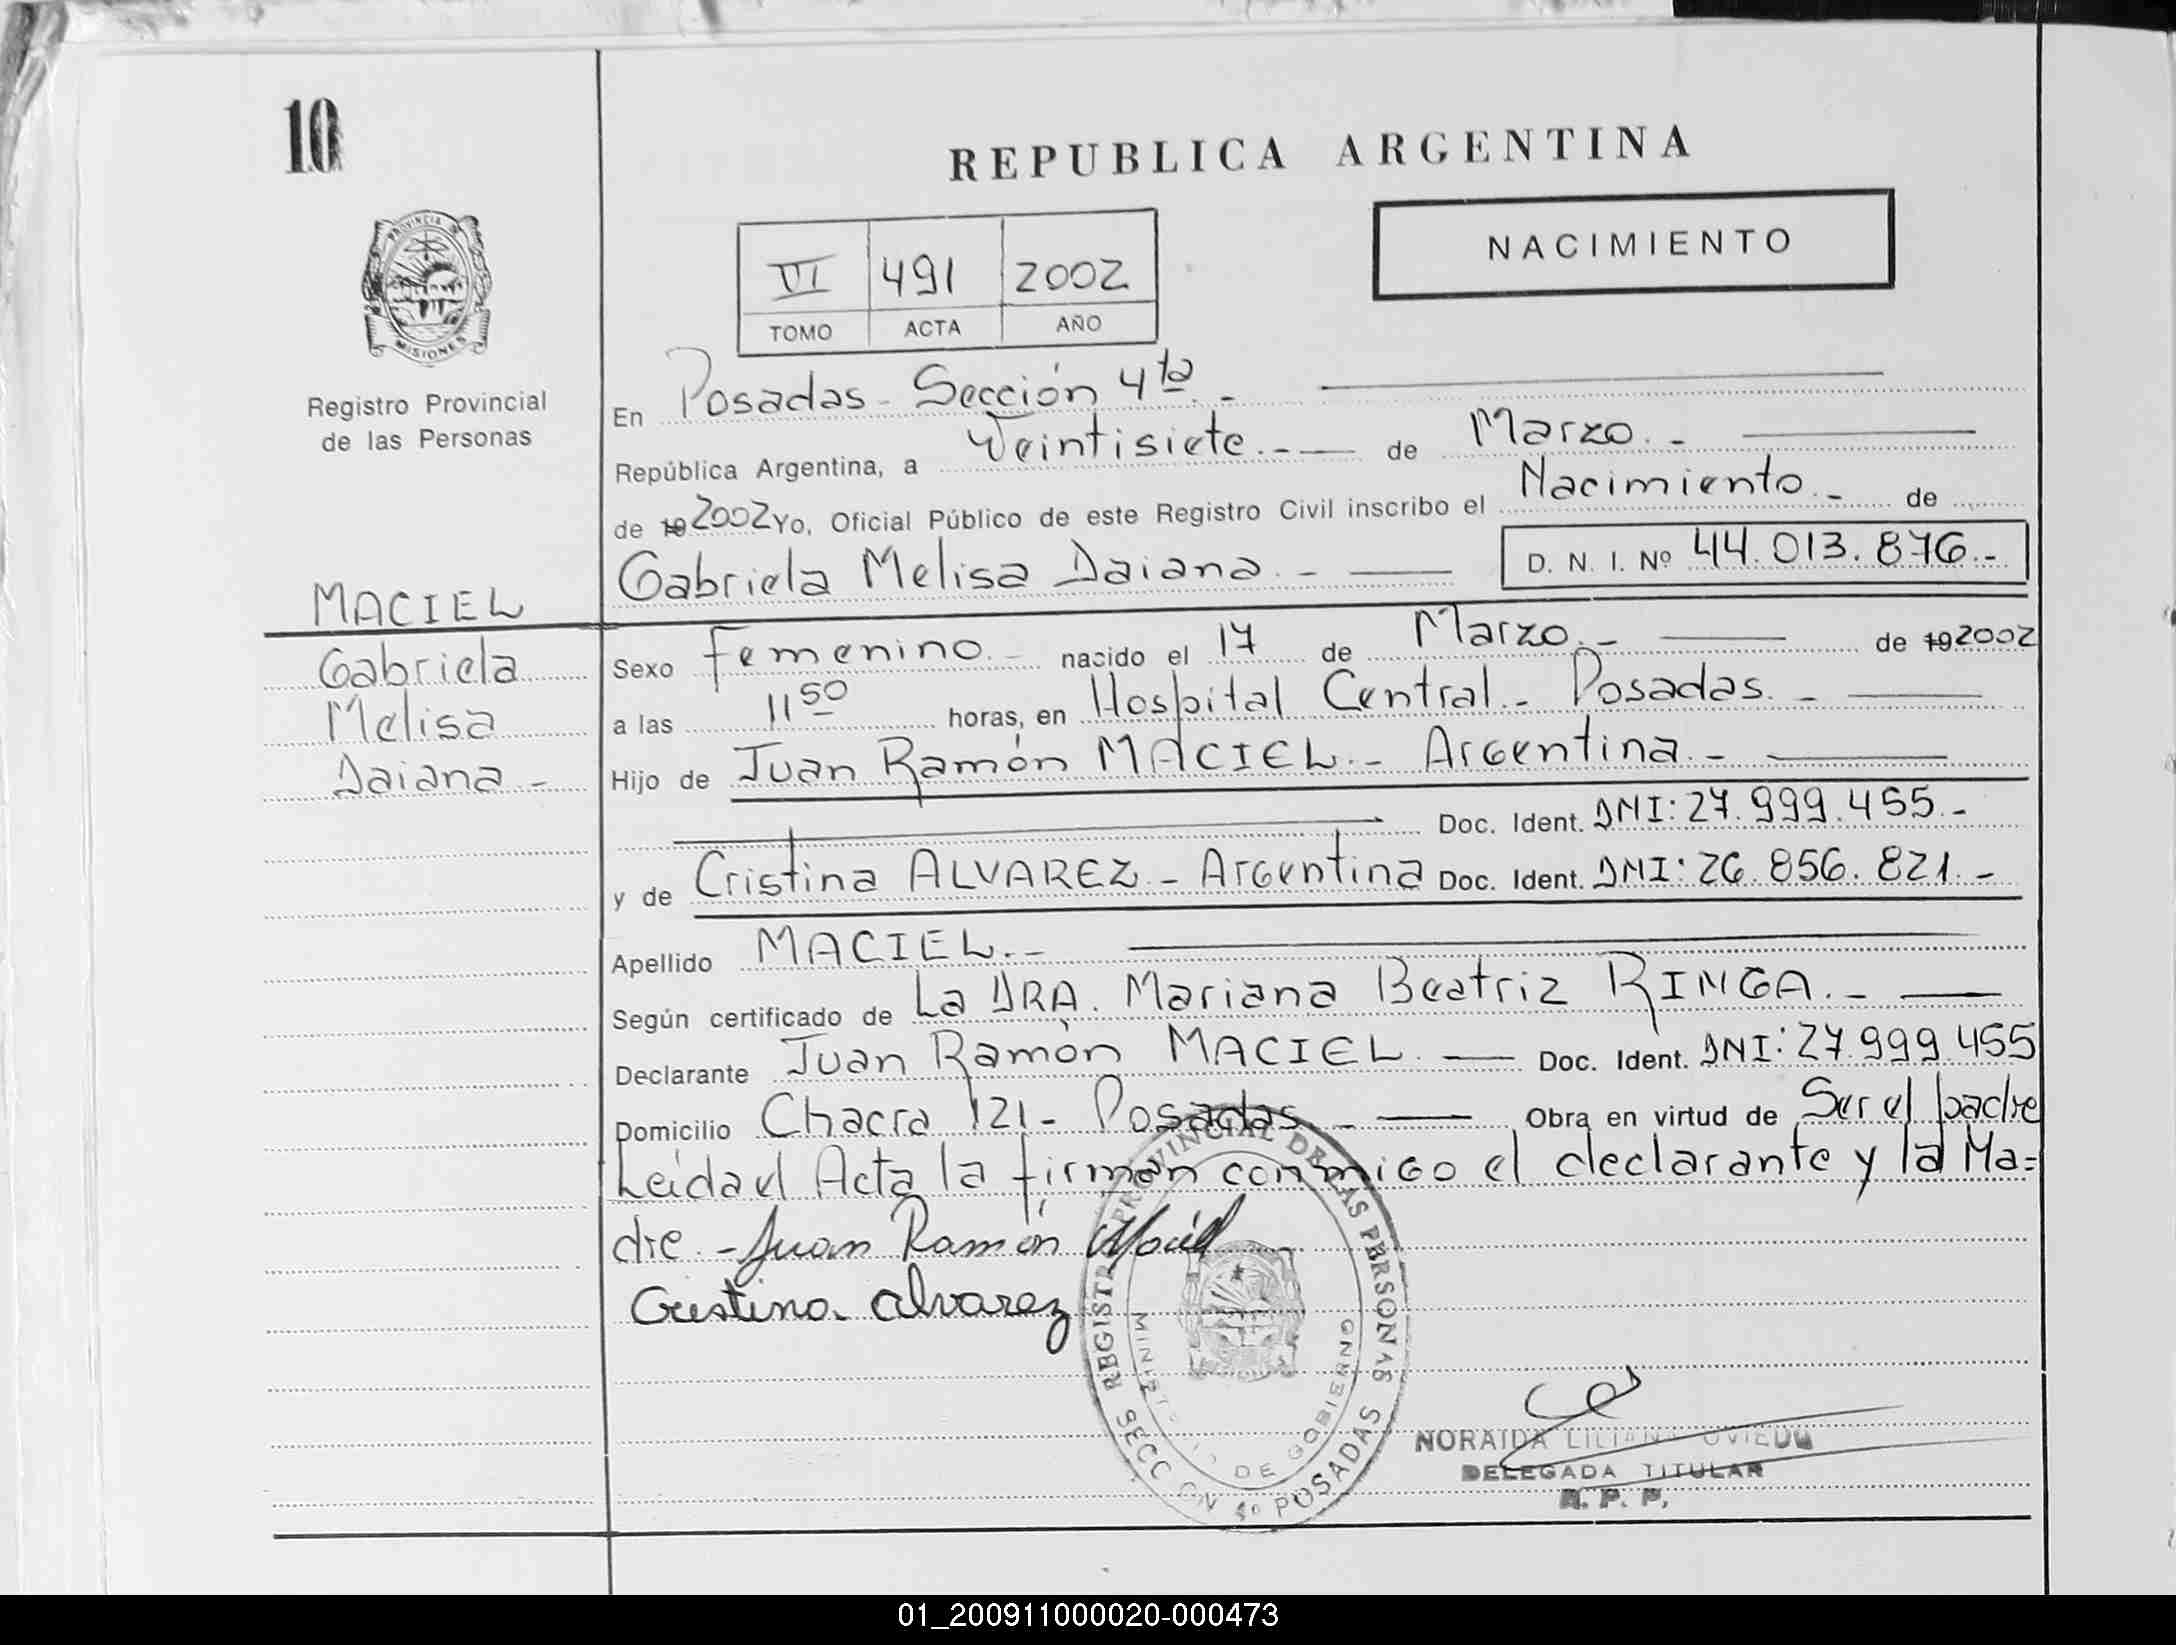 10
REPUBLICA ARGENTINA
NACIMIENTO
VI 491 2002
TOMO ACTA AÑO
PROVINCIA DE
MISIONES
Registro Provincial
de las Personas
En Posadas - Sección 4ta. -
República Argentina, a Veintisiete. - de Marzo. -
de 192002 Yo, Oficial Público de este Registro Civil inscribo el Nacimiento. - de
Gabriela Melisa Daiana. - D. N. I. Nº 44.013.876.-
MACIEL
Gabriela
Melisa
Daiana -
Sexo Femenino. - nacido el 17 de Marzo. - de 192002
a las 11 50 horas, en Hospital Central - Posadas. -
Hijo de Juan Ramón MACIEL. - Argentina. -
Doc. Ident. DNI: 27.999.455.-
y de Cristina ALVAREZ - Argentina Doc. Ident. DNI: 26.856.821.-
Apellido MACIEL. -
Según certificado de La DRA. Mariana Beatriz RINGA. -
Declarante Juan Ramón MACIEL. Doc. Ident. DNI: 27.999.455
Domicilio Chacra 121 - Posadas - Obra en virtud de Ser el padre
Leída el Acta la firman conmigo el declarante y la Ma=
dre. - Juan Ramón Maciel
Cristina alvarez
REGISTRO PROVINCIAL DE LAS PERSONAS
MINISTERIO DE GOBIERNO
SECCION 4º POSADAS
NORAIDA LILIANA OVIEDO
DELEGADA TITULAR
R. P. P.
01_200911000020-000473